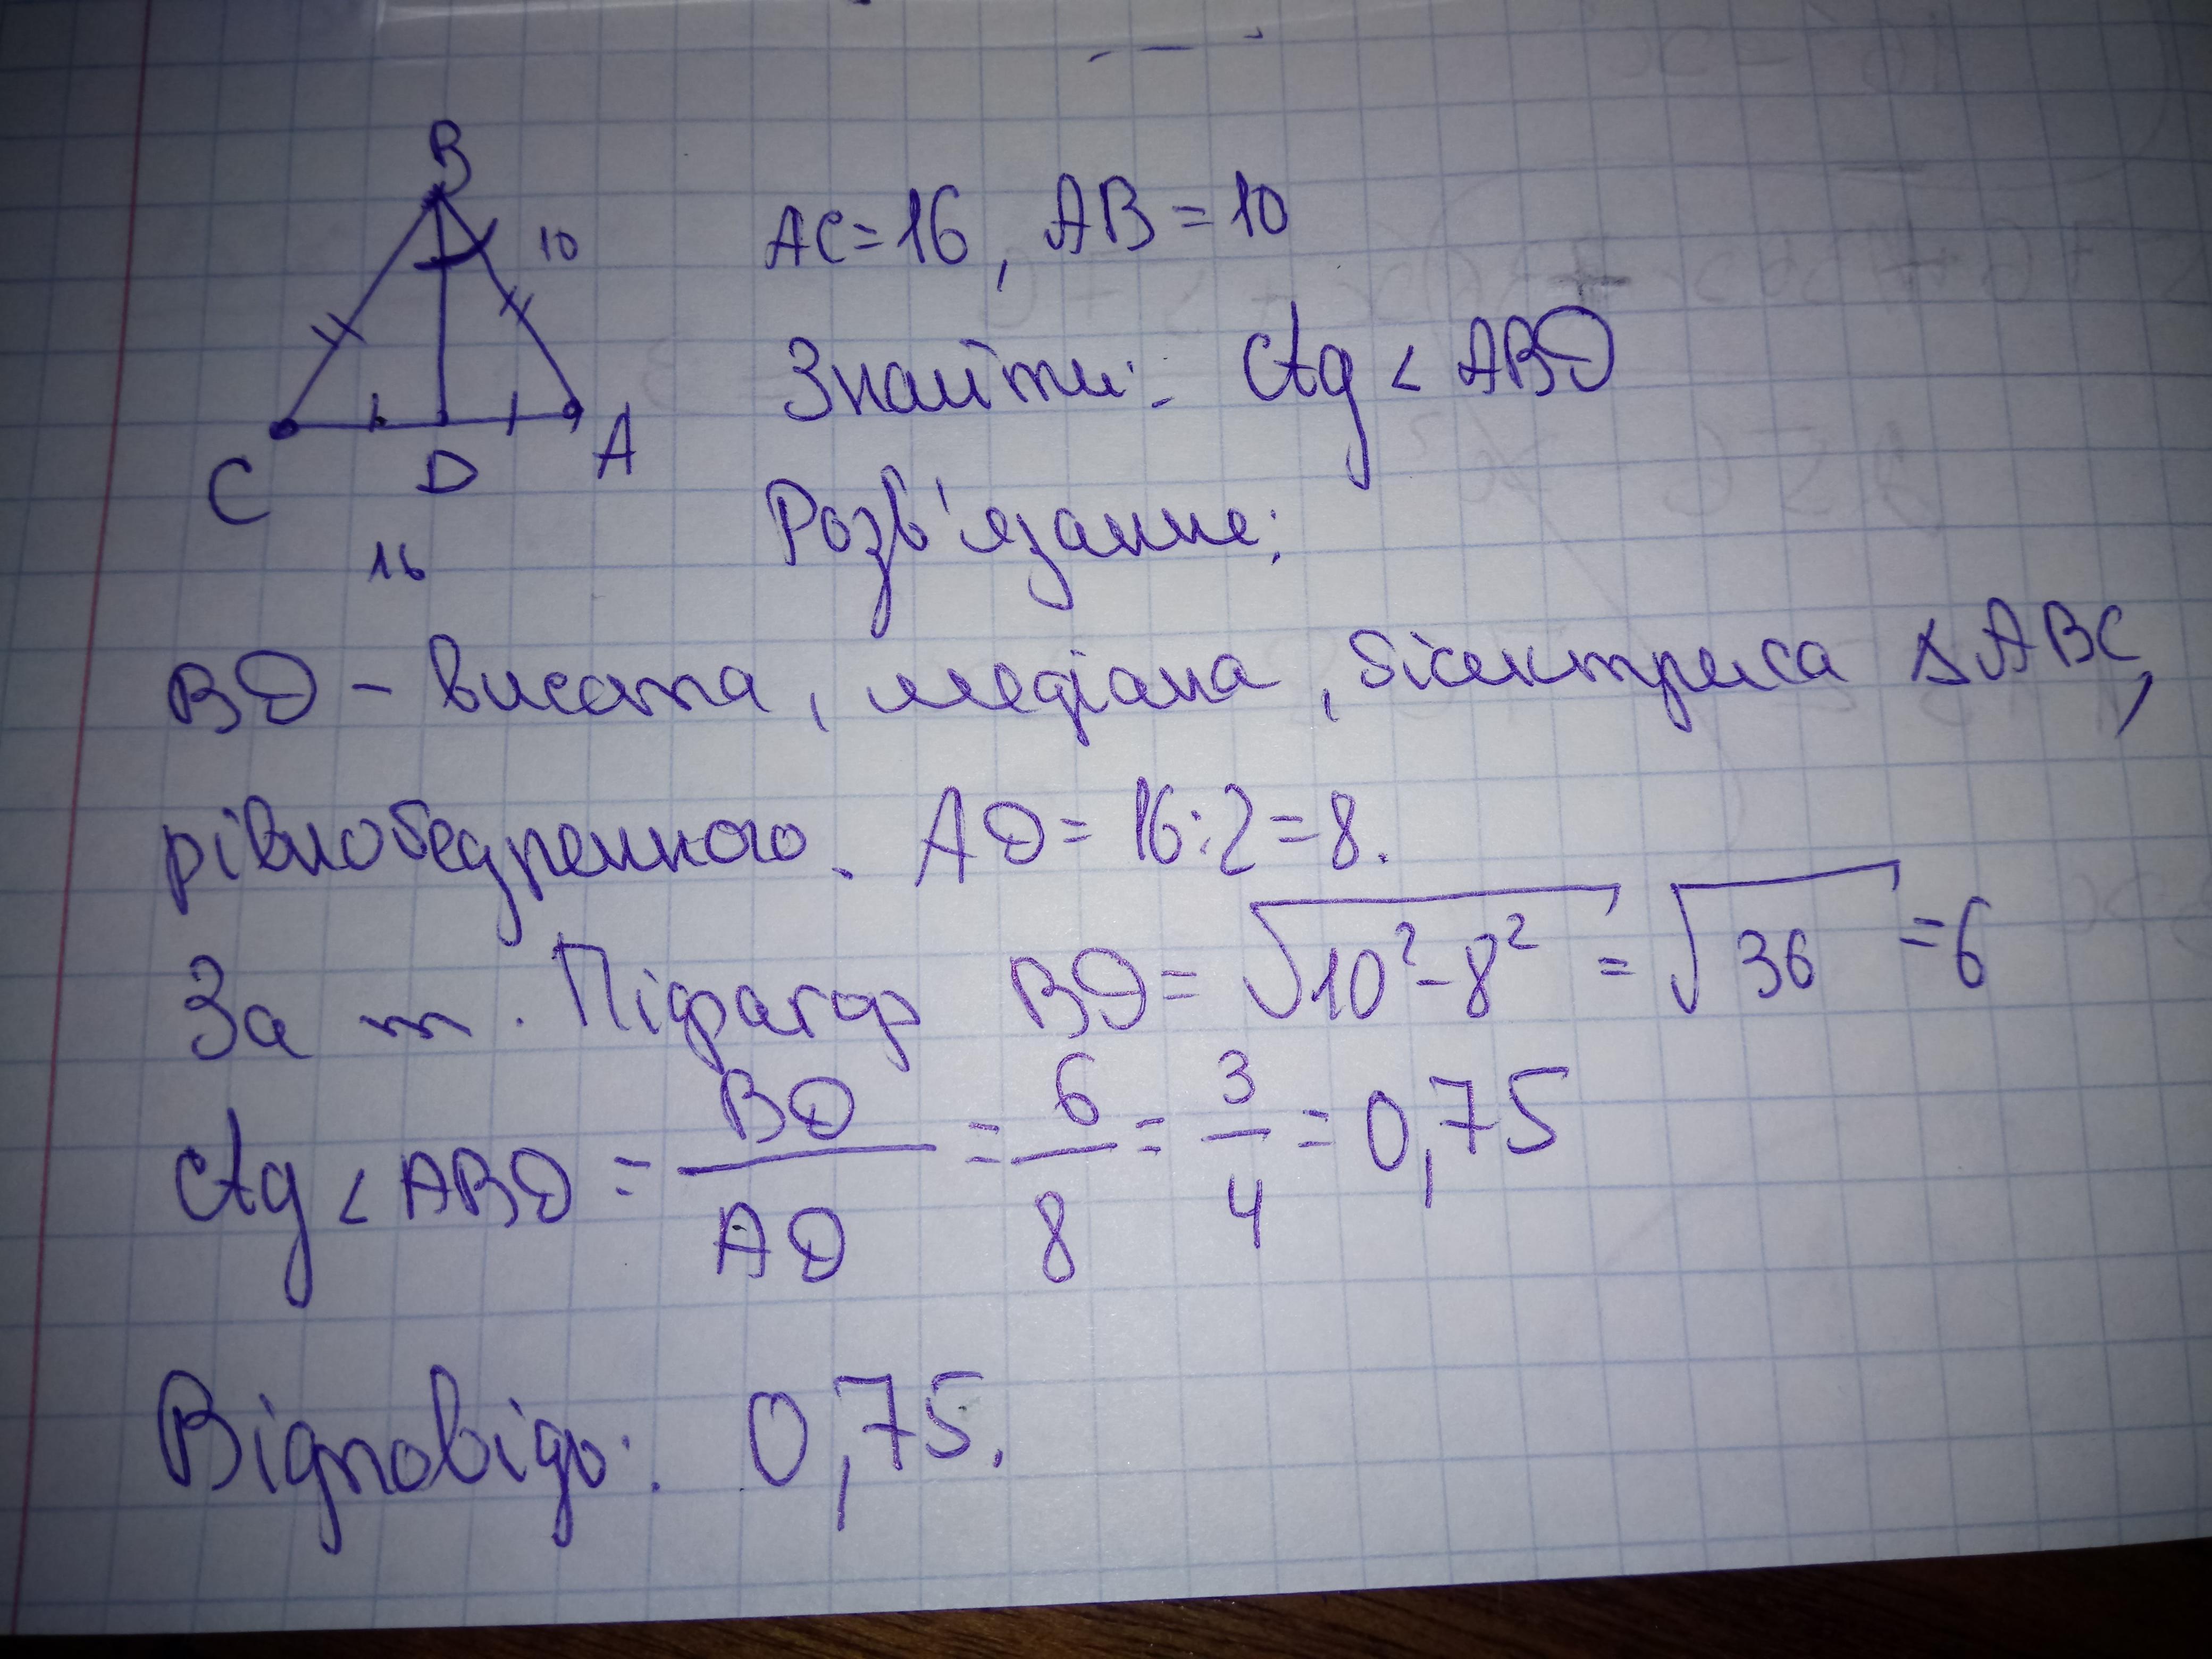 B
10
C D A
16
AC=16, AB=10
Знайти: Ctg < ABD
Розв'язание:
BD - висота, медіана, бісектриса ΔABC,
рівнобедренного. AD = 16:2=8.
За т. Піфагор BD = √10²-8² = √36 = 6
Ctg < ABD = BD/AD = 6/8 = 3/4 = 0,75
Відповідь: 0,75.